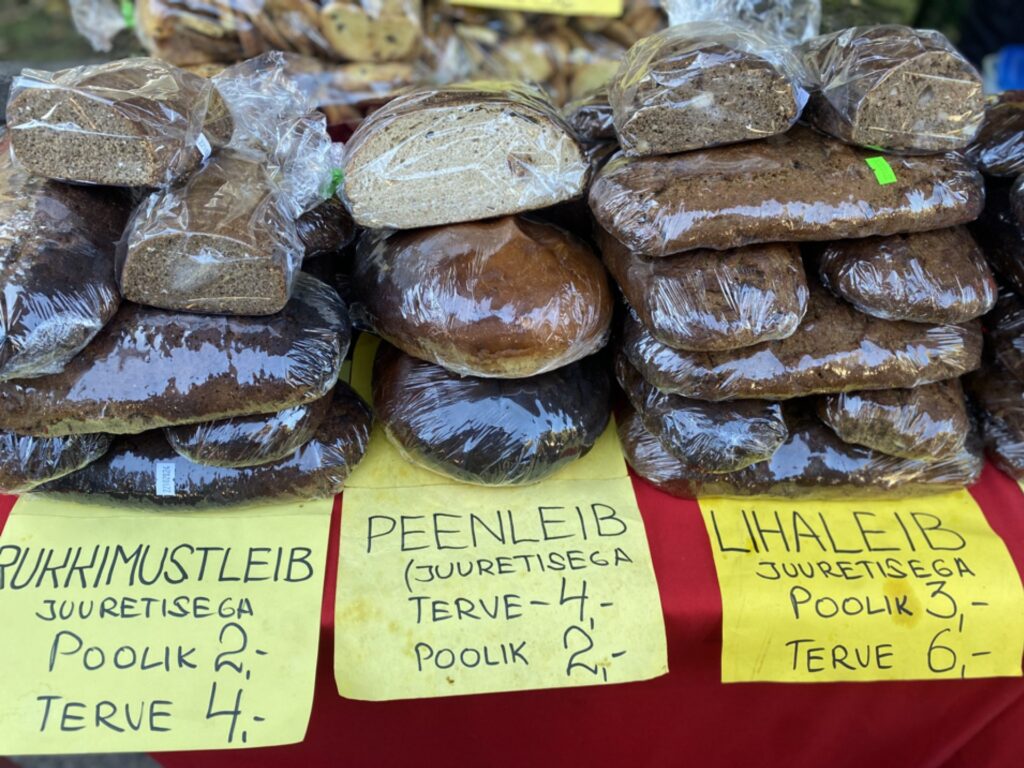 RUKKIMUSTLEIB
JUURETISEGA
POOLIK 2,-
TERVE 4,-
PEENLEIB
(JUURETISEGA
TERVE - 4,-
POOLIK 2,-
LIHALEIB
JUURETISEGA
POOLIK 3,-
TERVE 6,-